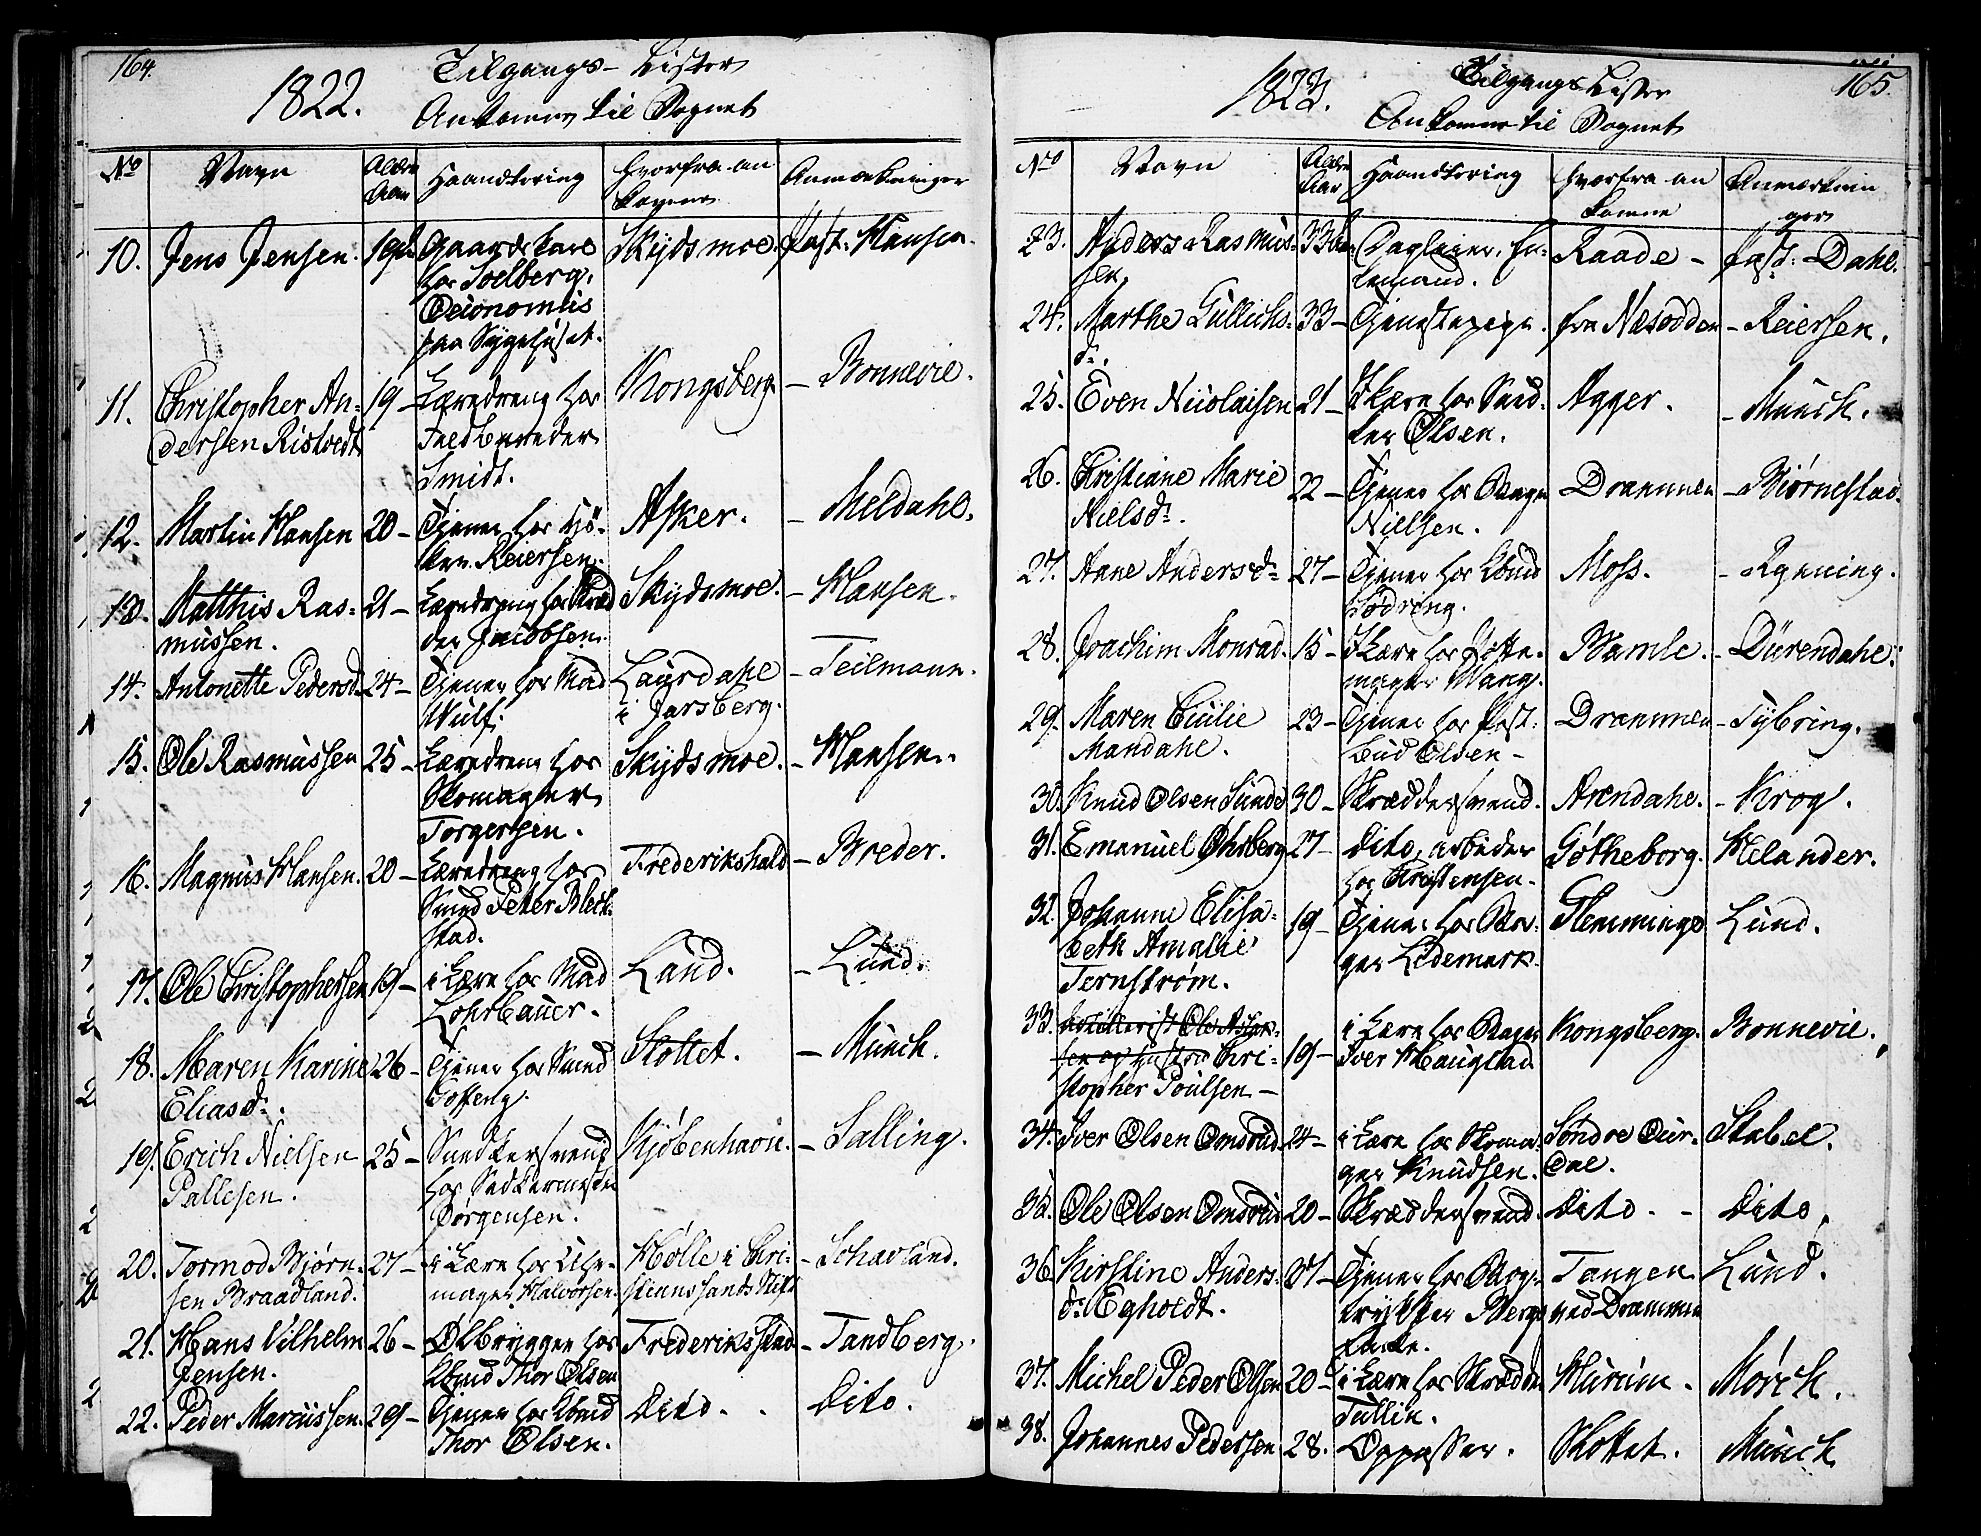 164.
1822.
Tilgangs-Lister
Ankomne til Sognet
No
Navn
Alder
Aar
Haandtering
Hvorfra an
komne
Anmærkninger
10.
Jens Jensen.
19
Gaardskarl
hos Solberg,
Oeionomus
paa Sygehuset.
Skydsmoe.
Past: Hansen.
11.
Christopher An-
dersen Ristvedt
19 –
Læredreng hos
Feldbereder
Smidt.
Kongsberg
– Bonnevie.
12.
Martin Hansen
20 –
Tjener hos Hö-
ker Reiersen.
Asker.
– Meldahl.
13.
Matthis Ras-
mussen.
21 –
Læredreng hos Skræd
der Jacobsen.
Skydsmoe.
– Hansen.
14.
Antonette Pedersd.
24 –
Tjener hos Mad
Wulf.
Laurdahl
i Jarsberg.
– Teilmann.
15.
Ole Rasmussen
25 –
Læredreng hos
Skomager
Torgersen.
Skydsmoe.
– Hansen.
16.
Magnus Hansen.
20 –
Læredreng hos
Smed Peter Blek-
stad.
Frederikshald
– Breder.
17.
Ole Christophersen
19 –
i Lære hos Mad
Lohrbauer.
Land.
– Lund.
18.
Maren Karine
Eliasd.
26 –
Tjener hos Smed
Toffeng.
Slottet.
– Münch.
19.
Erich Nielsen
Pallesen.
25 –
Snedkersvend
hos Snedkermester
Jörgensen.
Kjöbenhavn.
– Salling.
20.
Tormod Björn-
sen Braadland.
27 –
i Lære hos Uhr-
mager Halvorsen.
Holle i Chri-
stianssands Stift
– Schavland.
21.
Hans Vilhelm
Jensen.
26 –
Ölbrygger hos
Kbmd Thor Olsen
Frederiksstad
– Tandberg.
22.
Peder Marcussen.
29 –
Tjener hos Kbmd
Thor Olsen.
Dito.
Dito.
165.
1823.
Tilgangs Lister
Ankomne til Sognet
No
Navn
Alder
Aar
Haandtering
Hvorfra an
komne
Anmærknin
ger
23.
Anders Rasmus-
sen
33 Aar
Dagleier, En-
kemand.
Raade –
Past: Dahl.
24.
Marthe Gullichs-
dr.
33 –
Tjenestepige.
fra Næsodden
– Reiersen.
25.
Even Nicolaisen
21 –
I Lære hos Sned-
ker Olsen.
Agger.
– Münch.
26.
Christiane Marie
Nielsdr.
22 –
Tjener hos Bager
Nielsen.
Drammen
– Biörnestad
27.
Anne Andersdr
27 –
Tjener hos Kbmd
Födring.
Moss.
– Rynning.
28.
Joachim Monrad.
15 –
I Lære hos Potte-
mager Wang.
Bamle.
– Dürendahl.
29.
Maren Cicilie
Mandahl.
23 –
Tjener hos Post-
bud Olsen –
Drammen
– Tybring.
30.
Knud Olsen Sunde
30 –
Skræddersvend.
Arendahl.
– Krog.
31.
Emanuel Öhrberg
27 –
Dito, arbeider
hos Christensen.
Götheborg.
Helander.
32.
Johanne Elisa-
beth Amalie
Ternström.
19 –
Tjener hos Bor-
ger Lidemark.
Flemminge
Lund.
33.
Artillerist Ole Asla-
sen og Hustru Chri-
stopher Poulsen –
19 –
i Lære hos Bager
Iver Haugstad
Kongsberg.
Bonnevie.
34.
Iver Olsen Omsrud
24 –
i Lære hos Skoma-
ger Knudsen.
Söndre Our-
dal.
Stabel.
35.
Ole Olsen Omsrud
20 –
Skræddersvend.
Dito. –
Dito.
36
Kirstine Anders-
dr Egholdt.
37 –
Tjener hos Bog-
trykker Berg
Tangen
ved Drammen
Lund.
37.
Michel Peder Olsen
20 –
i Lære hos Skrædder
Tullin.
Hurum.
Mörch.
38.
Johannes Pedersen
28.
Oppasser.
Slottet.
Münch